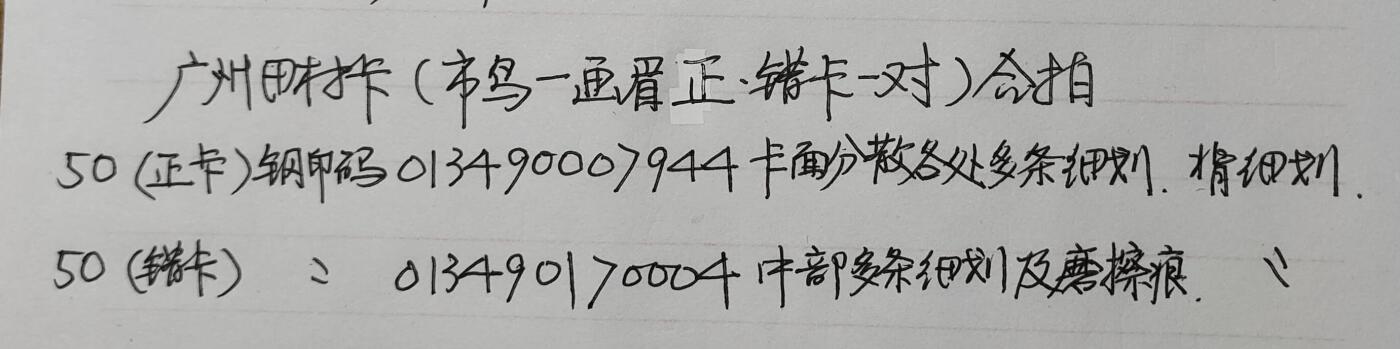 广州田村卡(市鸟一画眉正·错卡一对)合拍
50(正卡)钢印码013490007944卡面分散各处多条细划.背细划.
50(错卡) 〃 013490170004中部多条细划及磨擦痕. 〃